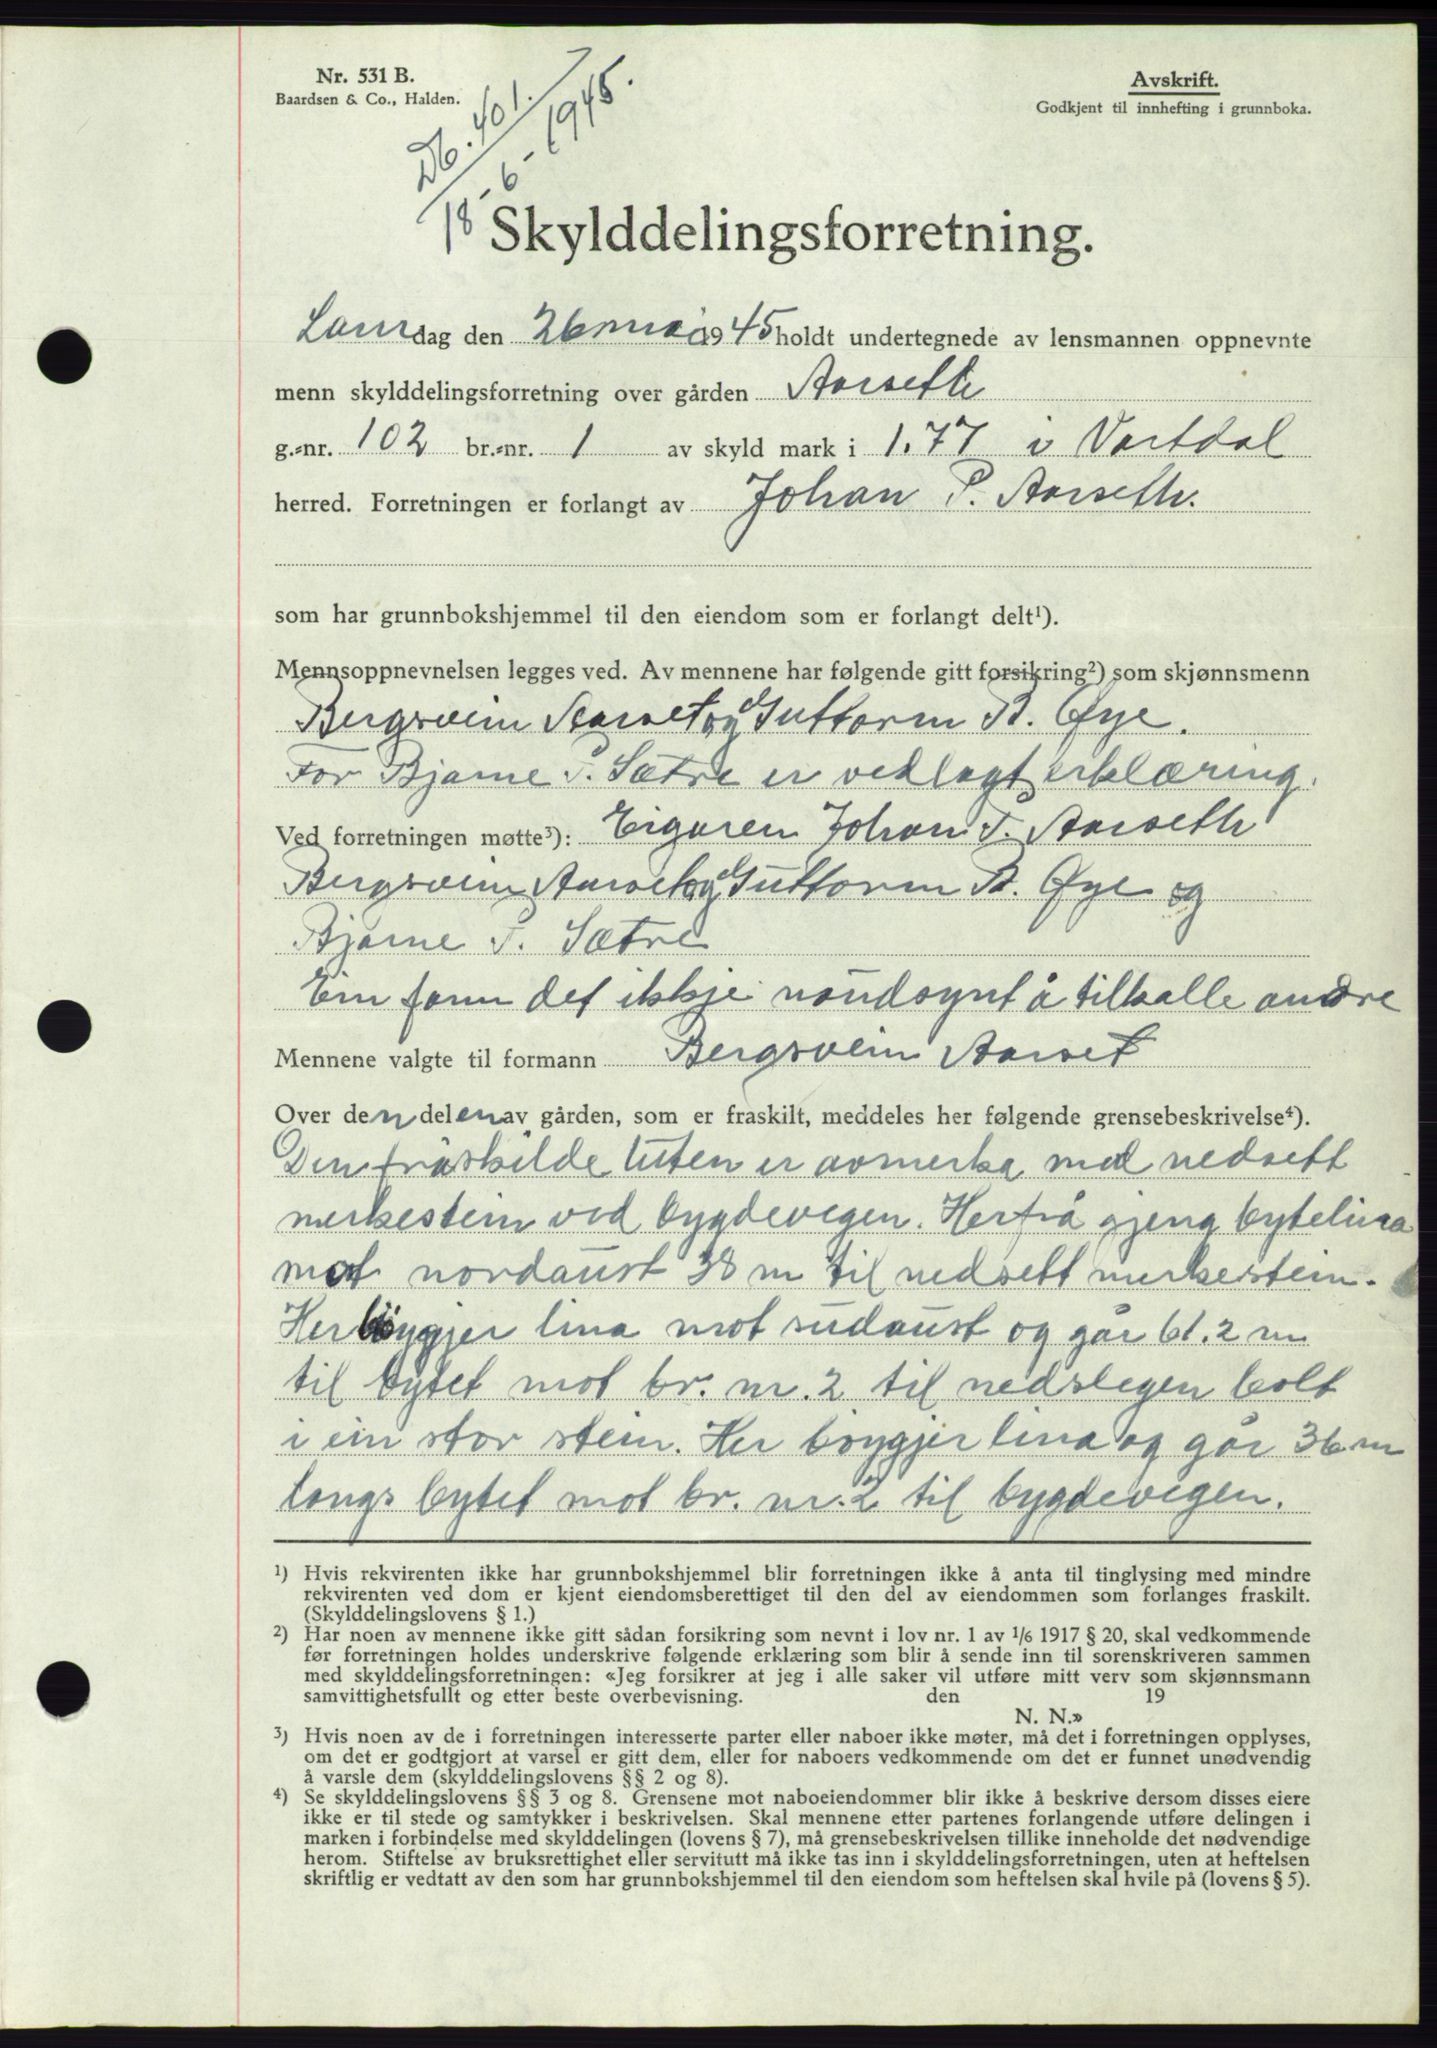 Nr. 531 B.
Baardsen & Co., Halden.
Db. 401.
18-6-1945.
Avskrift.
Godkjent til innhefting i grunnboka.
Skylddelingsforretning.
Laurdag den 26 mai 1945 holdt undertegnede av lensmannen oppnevnte
menn skylddelingsforretning over gården Aarseth
g.-nr. 102 br.-nr. 1 av skyld mark i 1.77 i Vartdal
herred. Forretningen er forlangt av Johan P. Aarseth.
som har grunnbokshjemmel til den eiendom som er forlangt delt¹).
Mennsoppnevnelsen legges ved. Av mennene har følgende gitt forsikring²) som skjønnsmenn
Bergsvein Aarset og Guttorm B. Øye.
For Bjarne P. Sætre er vedlagt erklæring.
Ved forretningen møtte³): Eigaren Johan P. Aarseth
Bergsvein Aarset og Guttorm B. Øye og
Bjarne P. Sætre
Ein fann det ikkje naudsynt å tilkalle andre
Mennene valgte til formann Bergsvein Aarset
Over den delen av gården, som er fraskilt, meddeles her følgende grensebeskrivelse⁴).
Den fråskilde luten er avmerka med nedsett
merkestein ved bygdevegen. Herfrå gjeng bytelina
mot nordaust 38 m til nedsett merkestein.
Her bøygjer lina mot sudaust og går 61.2 m
til bytet mot br. nr. 2 til nedslegen bolt
i ein stor stein. Her bøygjer lina og går 36 m
langs bytet mot br. nr. 2 til bygdevegen.
¹) Hvis rekvirenten ikke har grunnbokshjemmel blir forretningen ikke å anta til tinglysing med mindre
rekvirenten ved dom er kjent eiendomsberettiget til den del av eiendommen som forlanges fraskilt.
(Skylddelingslovens § 1.)
²) Har noen av mennene ikke gitt sådan forsikring som nevnt i lov nr. 1 av 1/6 1917 § 20, skal vedkommende
før forretningen holdes underskrive følgende erklæring som blir å sende inn til sorenskriveren sammen
med skylddelingsforretningen: «Jeg forsikrer at jeg i alle saker vil utføre mitt verv som skjønnsmann
samvittighetsfullt og etter beste overbevisning. den 19
N. N.»
³) Hvis noen av de i forretningen interesserte parter eller naboer ikke møter, må det i forretningen opplyses,
om det er godtgjort at varsel er gitt dem, eller for naboers vedkommende om det er funnet unødvendig
å varsle dem (skylddelingslovens §§ 2 og 8).
⁴) Se skylddelingslovens §§ 3 og 8. Grensene mot naboeiendommer blir ikke å beskrive dersom disses eiere
ikke er til stede og samtykker i beskrivelsen. Skal mennene etter partenes forlangende utføre delingen i
marken i forbindelse med skylddelingen (lovens § 7), må grensebeskrivelsen tillike inneholde det nødvendige
herom. Stiftelse av bruksrettighet eller servitutt må ikke tas inn i skylddelingsforretningen, uten at heftelsen
skriftlig er vedtatt av den som har grunnbokshjemmel til den eiendom som heftelsen skal hvile på (lovens § 5).